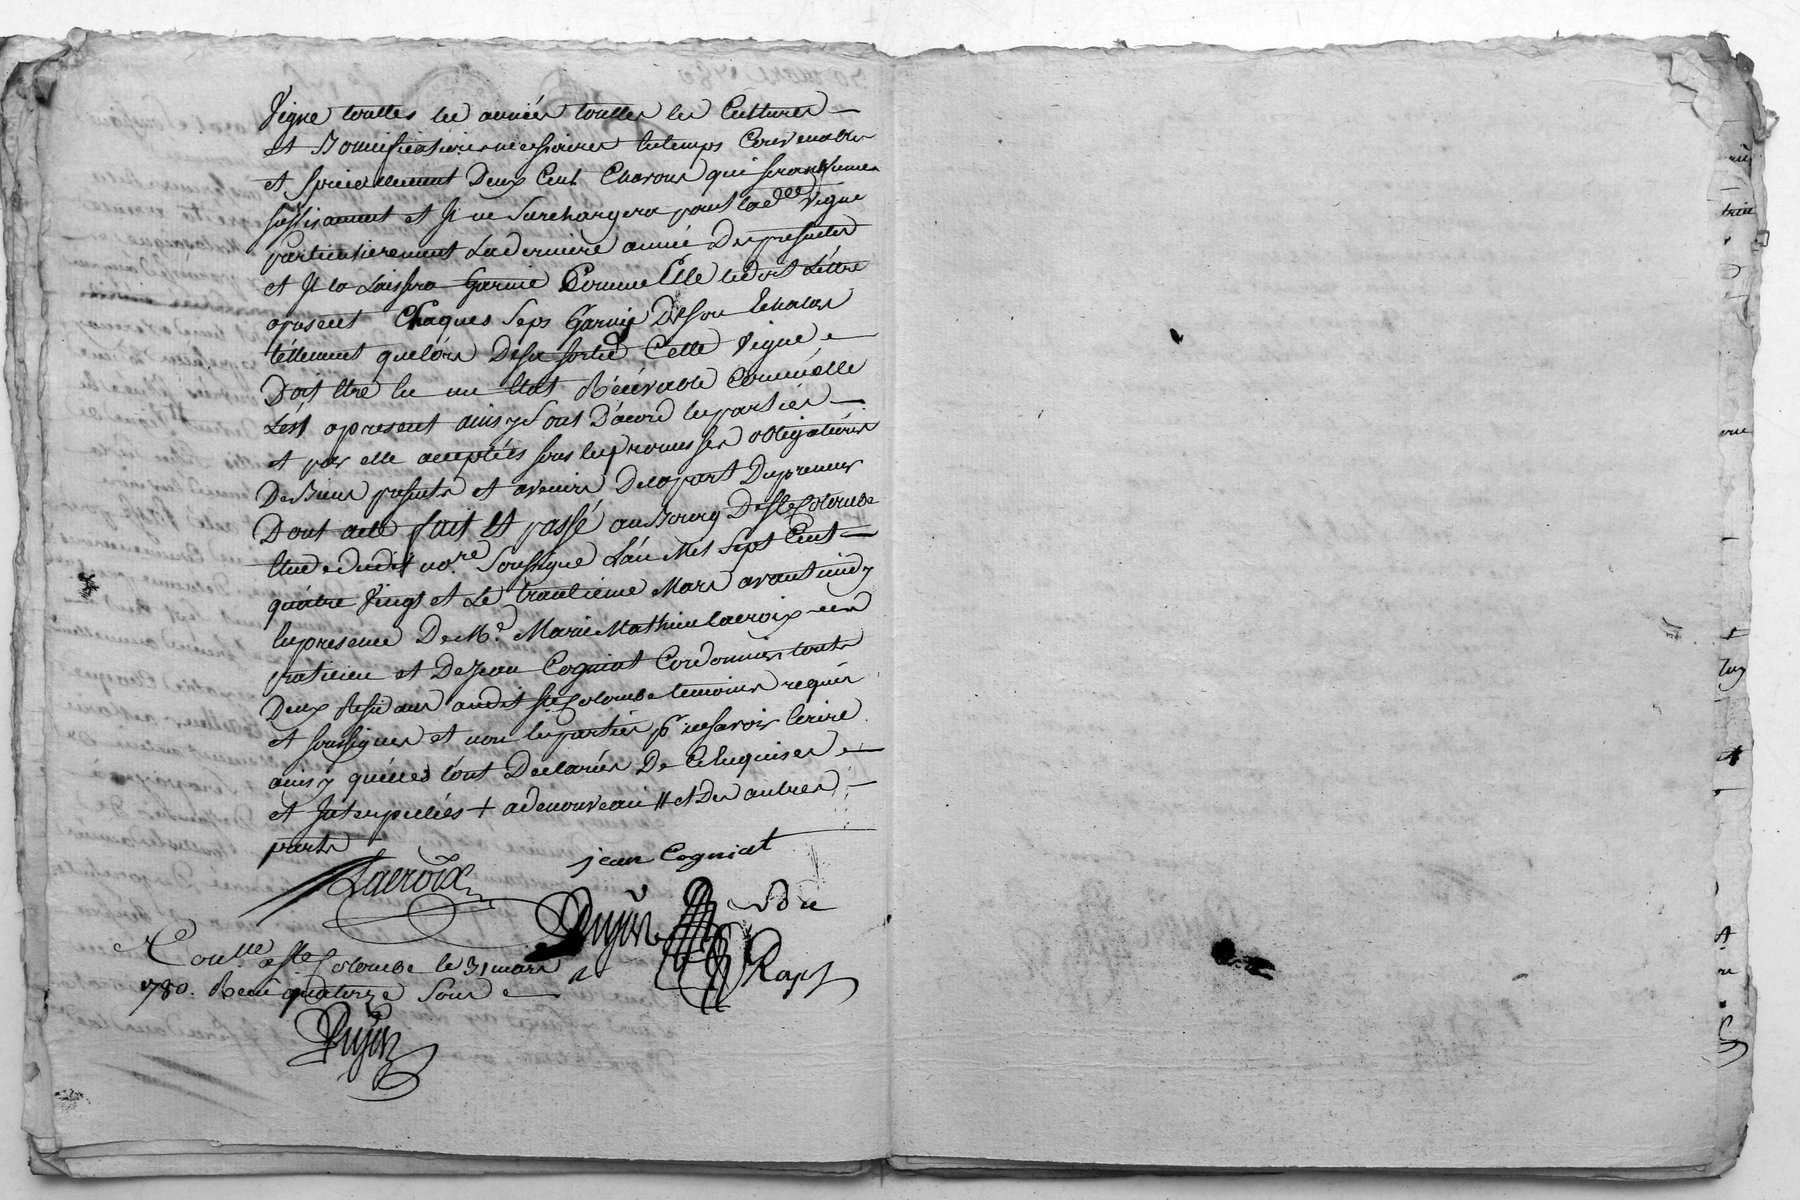 Vigne touttes les années touttes les Cultures
et Bonnifications necessaires En temps Convenable
et speciallement Deux Cent Chavons qui seront fumes
suffisament et Il ne Surchargera point lad.ee Vigne
particulierement La derniere année Des presentes
et Il la Laissera Garnie Comme Elle le doit L'être
apresent Chaques Seps Garnis De son Echalas
tellement que lors De sa sortie Cette Vigne
Doit être En un Etat Récevable Comme elle
L'est apresent ainsy Sont D'acord les parties
et par elle acceptées sous les promesses obligations
De Biens presents et avenirs De la part Du preneur
Dont acte fait Et passé au Bourg De Ste Colombe
Etude dudit no.re Soussigne L'an Mil Sept Cent
quatre Vingt et Le trantieme Mars avant midy
En presence De M.e Marie Mathieu Lacroix
praticien et De Jean Cogniat Cordonnier touts
Deux Residans audit Ste Colombe temoins requis
et soussignes et non les parties p.r ne savoir Ecrire
ainsy qu'elles l'ont Declarées De Ce Enquises
et Interpellées + a de nouveau // et Des autres
parts
Lacroix
jean Cogniat
Pugon
Con.lle a Ste Colombe le 31 mars
1780. Receu quatorze Sous
Pugon